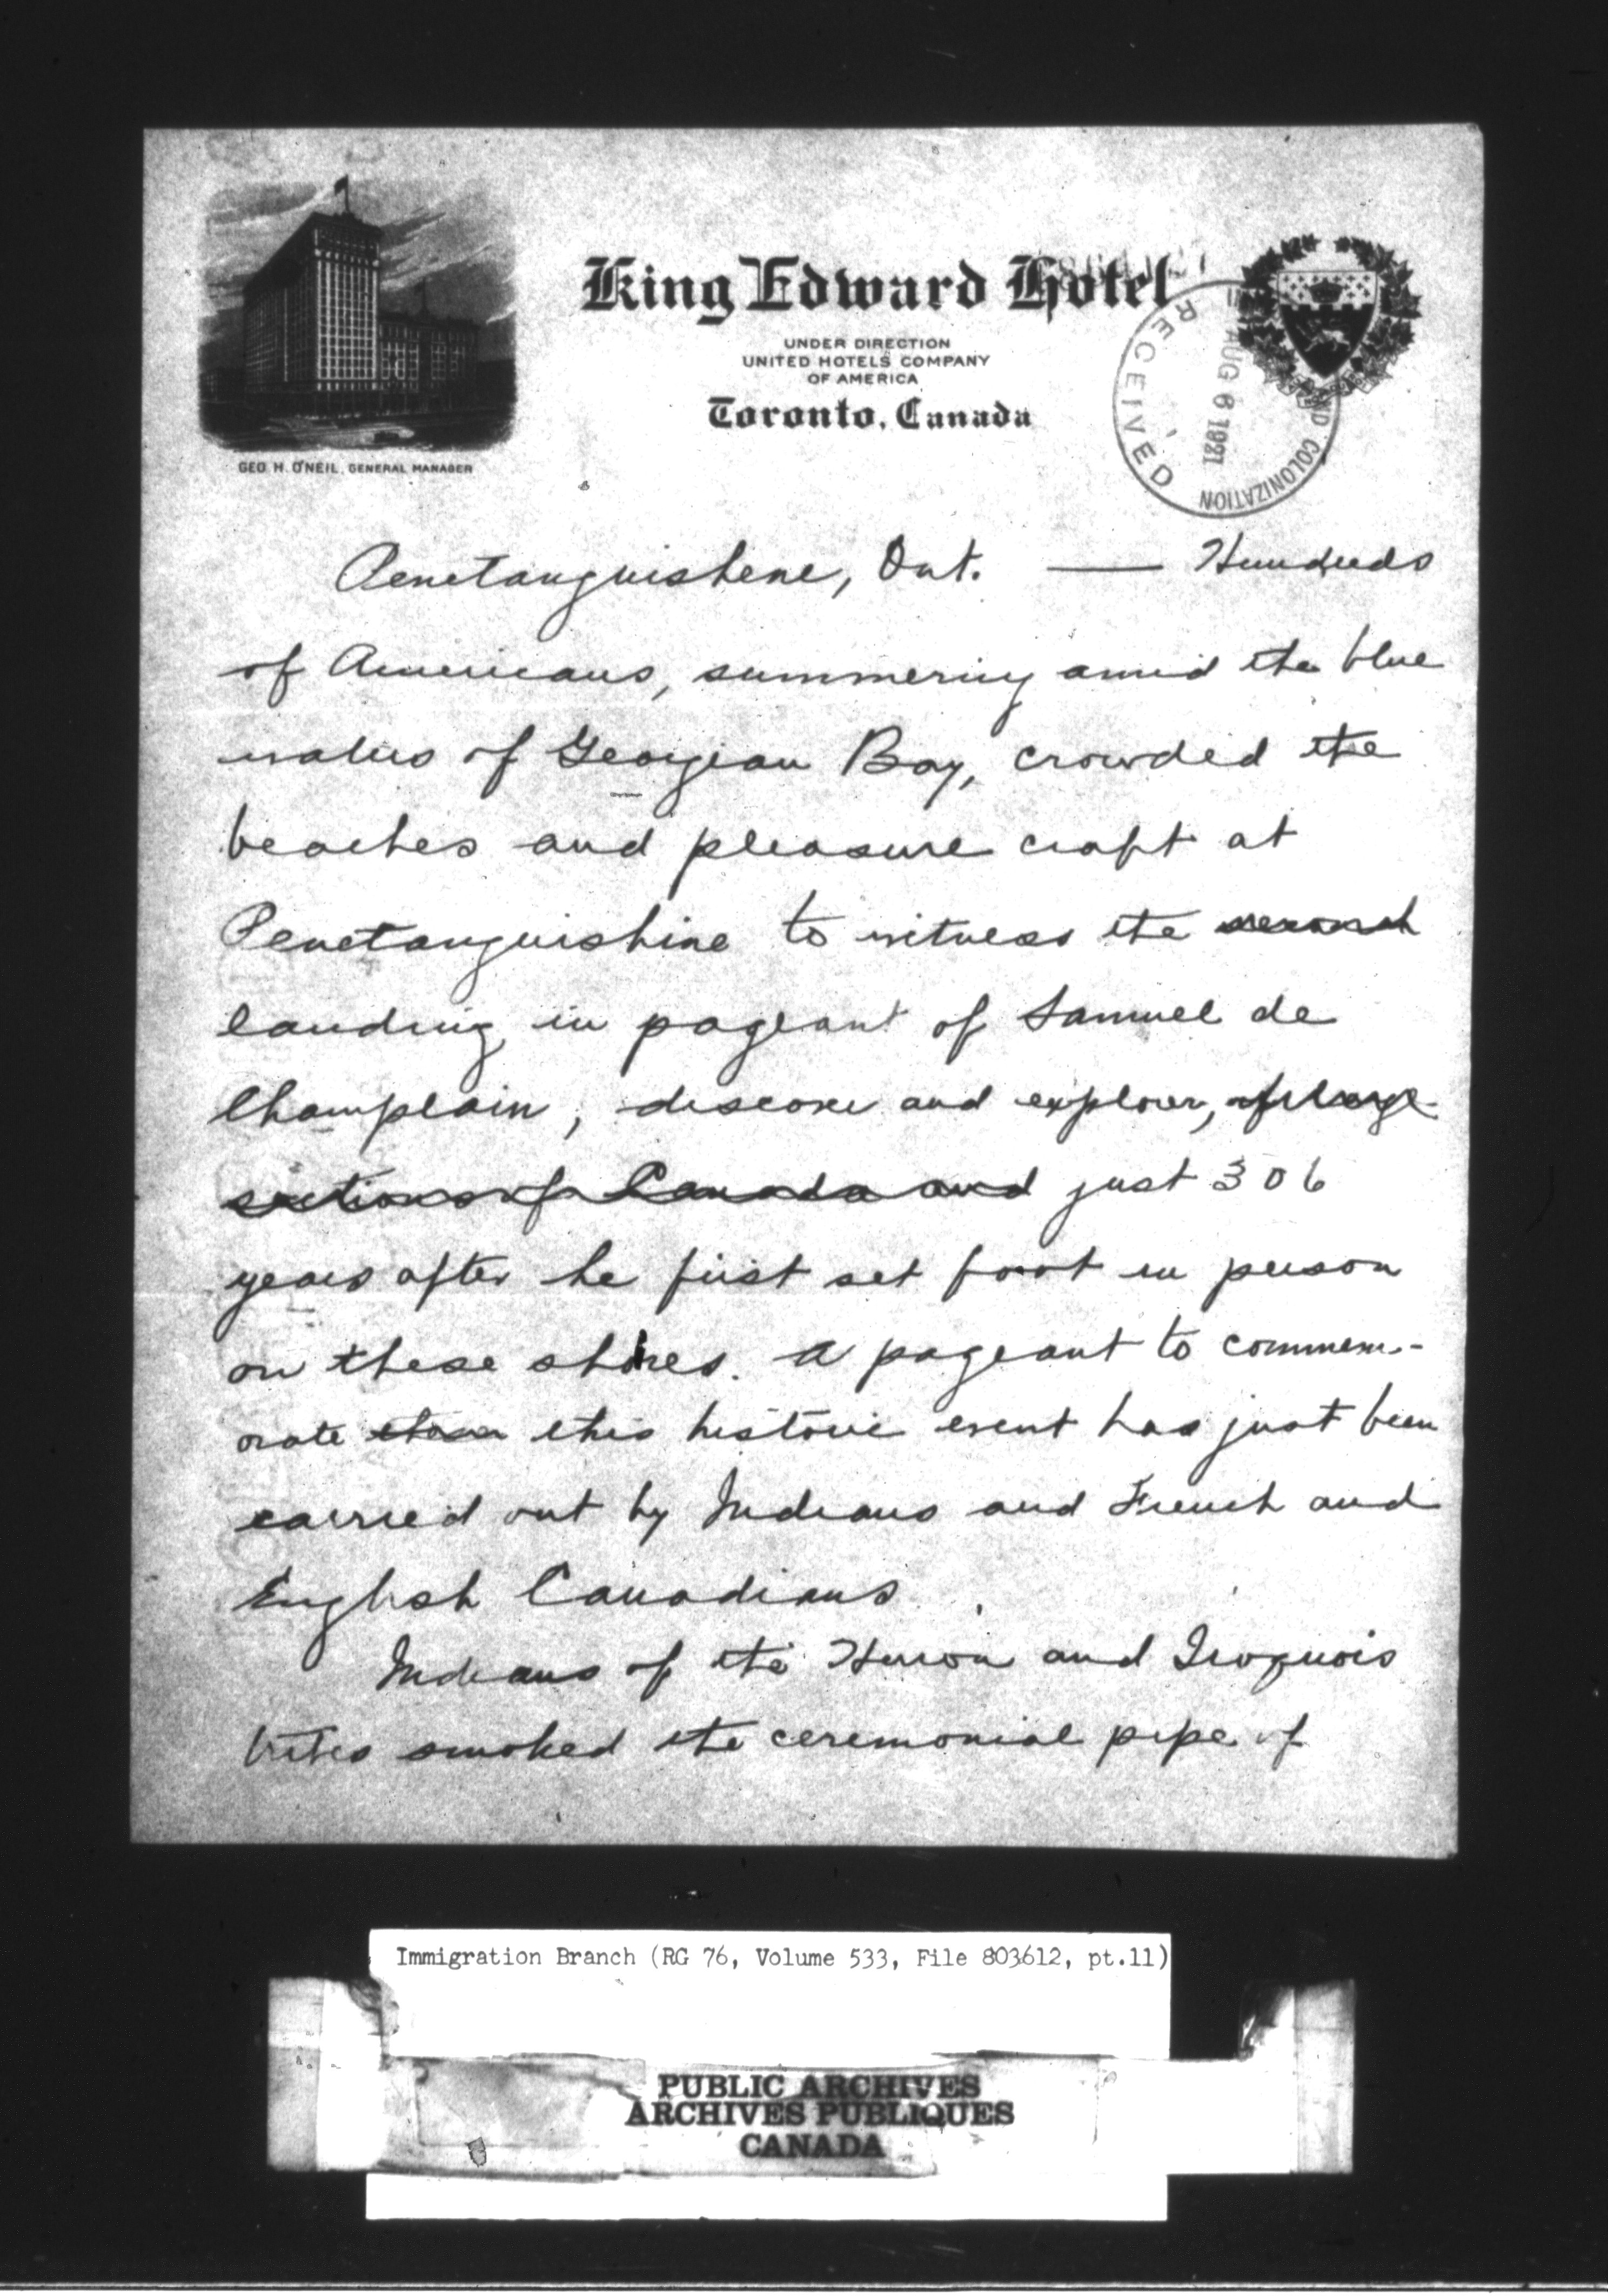 King Edward Hotel
UNDER DIRECTION
UNITED HOTELS COMPANY
OF AMERICA
Toronto, Canada
GEO. H. O'NEIL, GENERAL MANAGER
RECEIVED
AUG 6 1921
AND COLONIZATION
Penetanguishene, Ont. — Hundreds
of Americans, summering amid the blue
waters of Georgian Bay, crowded the
beaches and pleasure craft at
Penetanguishine to witness the second
landing in pageant of Samuel de
Champlain, discover and explorer, of large
sections of Canada and just 306
years after he first set foot in person
on these shores. A pageant to commem-
orate this historic event has just been
carried out by Indians and French and
English Canadians
Indians of the Huron and Iroquois
tribes smoked the ceremonial pipe of
Immigration Branch (RG 76, Volume 533, File 803612, pt.11)
PUBLIC ARCHIVES
ARCHIVES PUBLIQUES
CANADA